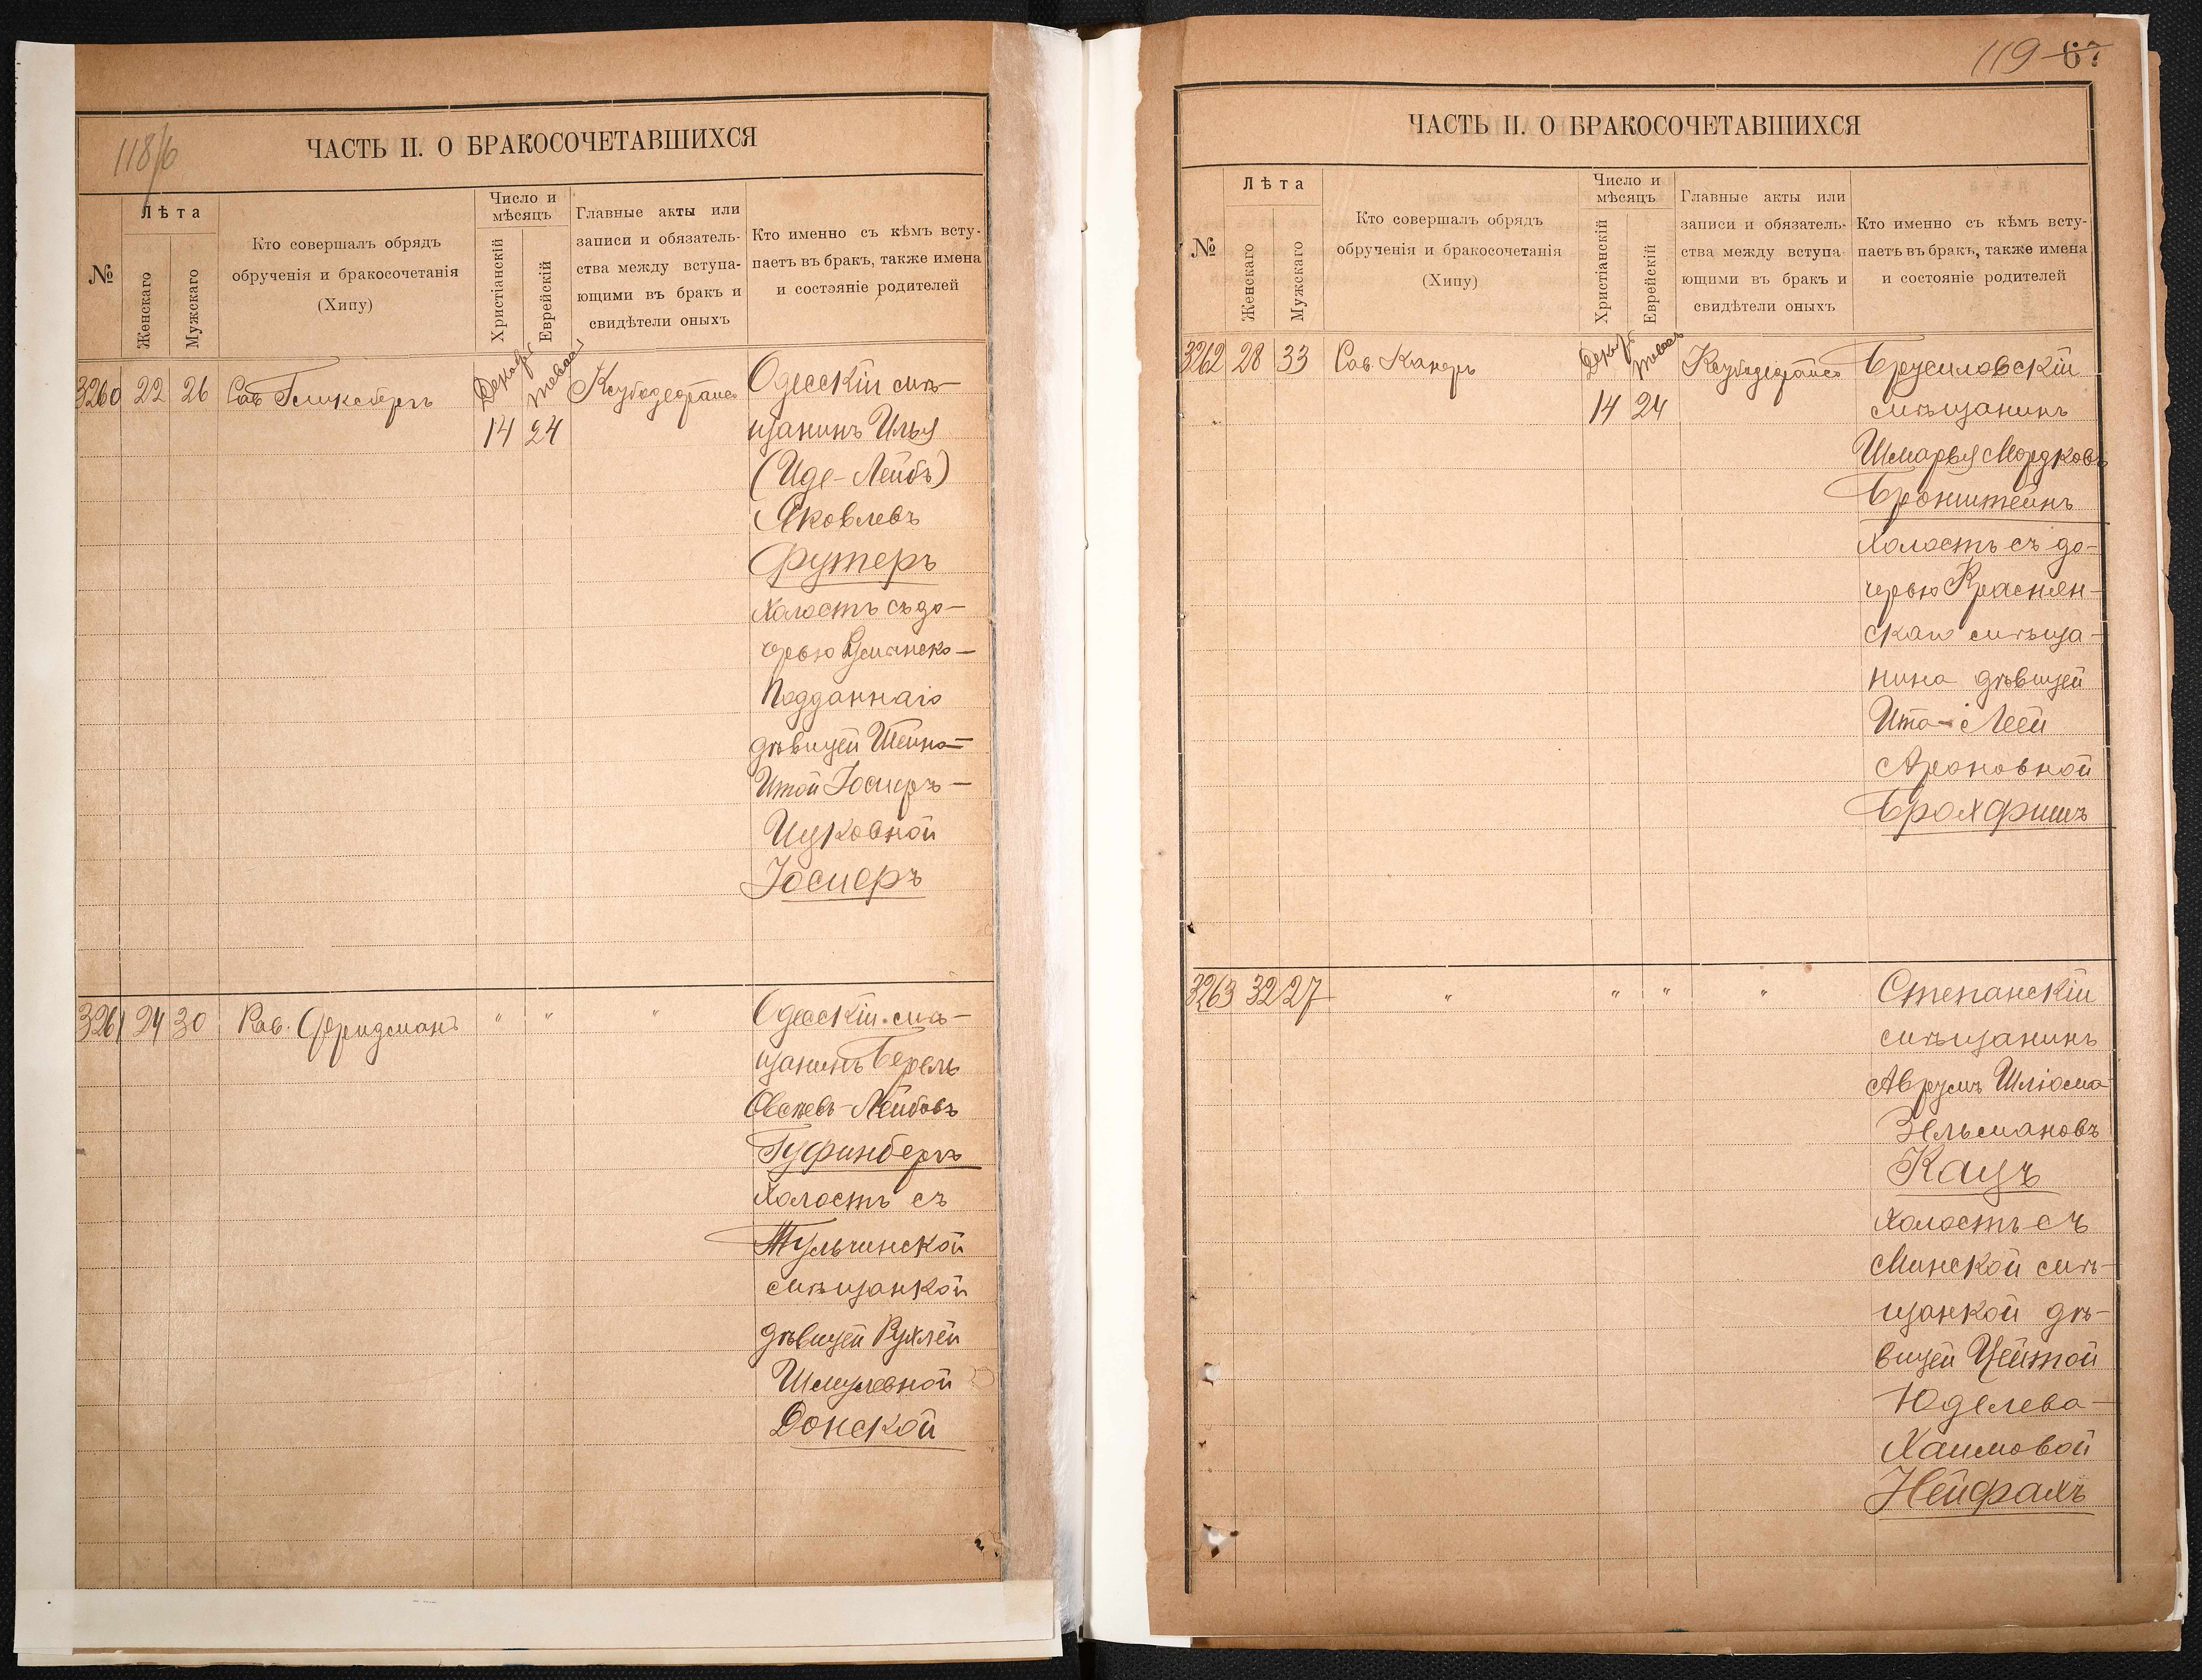 118/6
ЧАСТЬ II. О БРАКОСОЧЕТАВШИХСЯ
№
Лѣта
Женскаго
Мужскаго
Кто совершалъ обрядъ
обрученія и бракосочетанія
(Хипу)
Число и
мѣсяцъ
Христіанскій
Еврейскій
Главные акты или
записи и обязатель-
ства между вступа-
ющими въ бракъ и
свидѣтели оныхъ
Кто именно съ кѣмъ всту-
паетъ въ бракъ, также имена
и состояніе родителей
3260 22 26
Декабр
14 24
Одесскій мѣ-
щанинъ Илья
(Иде-Лейбъ)
Яковлевъ
Футеръ
Холостъ съ до-
черью
Подданнаго
дѣвицей Шейна-
Итой Іосиеръ-
Ицковной
Іосиеръ
3261 24 30 Рав. Фридманъ " " "
Одесскій мѣ-
щанинъ Берель
Овсѣевъ-Лейбовъ
Гуфинбергъ
Холостъ съ
Тульчинской
мѣщанкой
дѣвицей Рухлей
Шмулевной
Донской
119 67
ЧАСТЬ II. О БРАКОСОЧЕТАВШИХСЯ
№
Лѣта
Женскаго
Мужскаго
Кто совершалъ обрядъ
обрученія и бракосочетанія
(Хипу)
Число и
мѣсяцъ
Христіанскій
Еврейскій
Главные акты или
записи и обязатель-
ства между вступа-
ющими въ бракъ и
свидѣтели оныхъ
Кто именно съ кѣмъ всту-
паетъ въ бракъ, также имена
и состояніе родителей
3262 28 33
Декабр
14 24
Брусиловскій
мѣщанинъ
Шмарья Мордковъ
Бронштейнъ
Холостъ съ до-
черью Краснян-
скаго мѣща-
нина дѣвицей
Ита-Леей
Ароновной
Бролфишъ
3263 32 27 " " " "
Степанскій
мѣщанинъ
Аврумъ Шлюма
Зельмановъ
Кацъ
Холостъ съ
Минской мѣ-
щанкой дѣ-
вицей Цейтой
Юделева-
Хаимовой
Нейфахъ